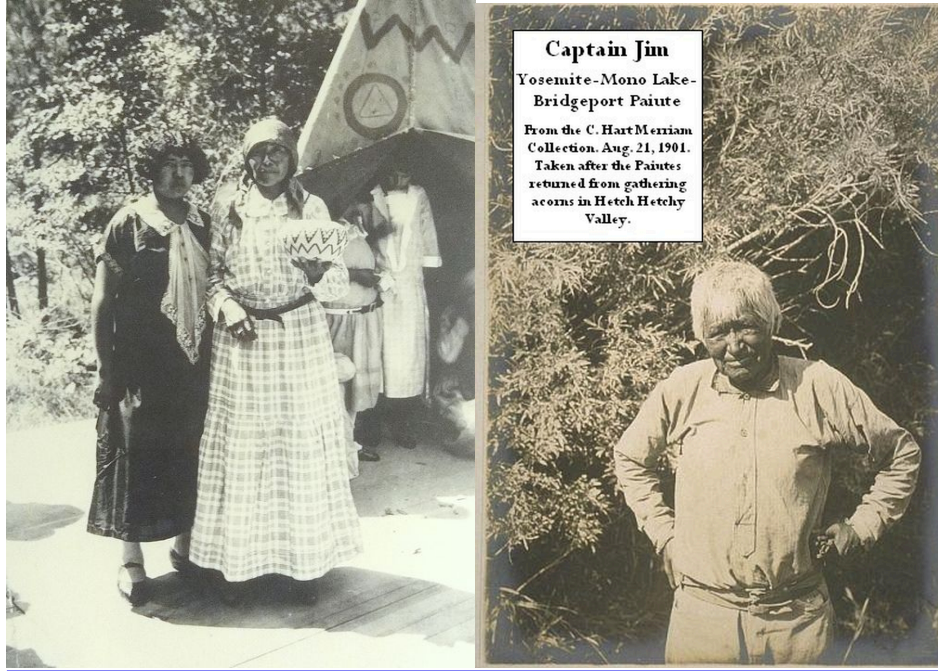 Captain Jim
Yosemite-Mono Lake-
Bridgeport Paiute
From the C. Hart Merriam
Collection. Aug. 21, 1901.
Taken after the Paiutes
returned from gathering
acorns in Hetch Hetchy
Valley.